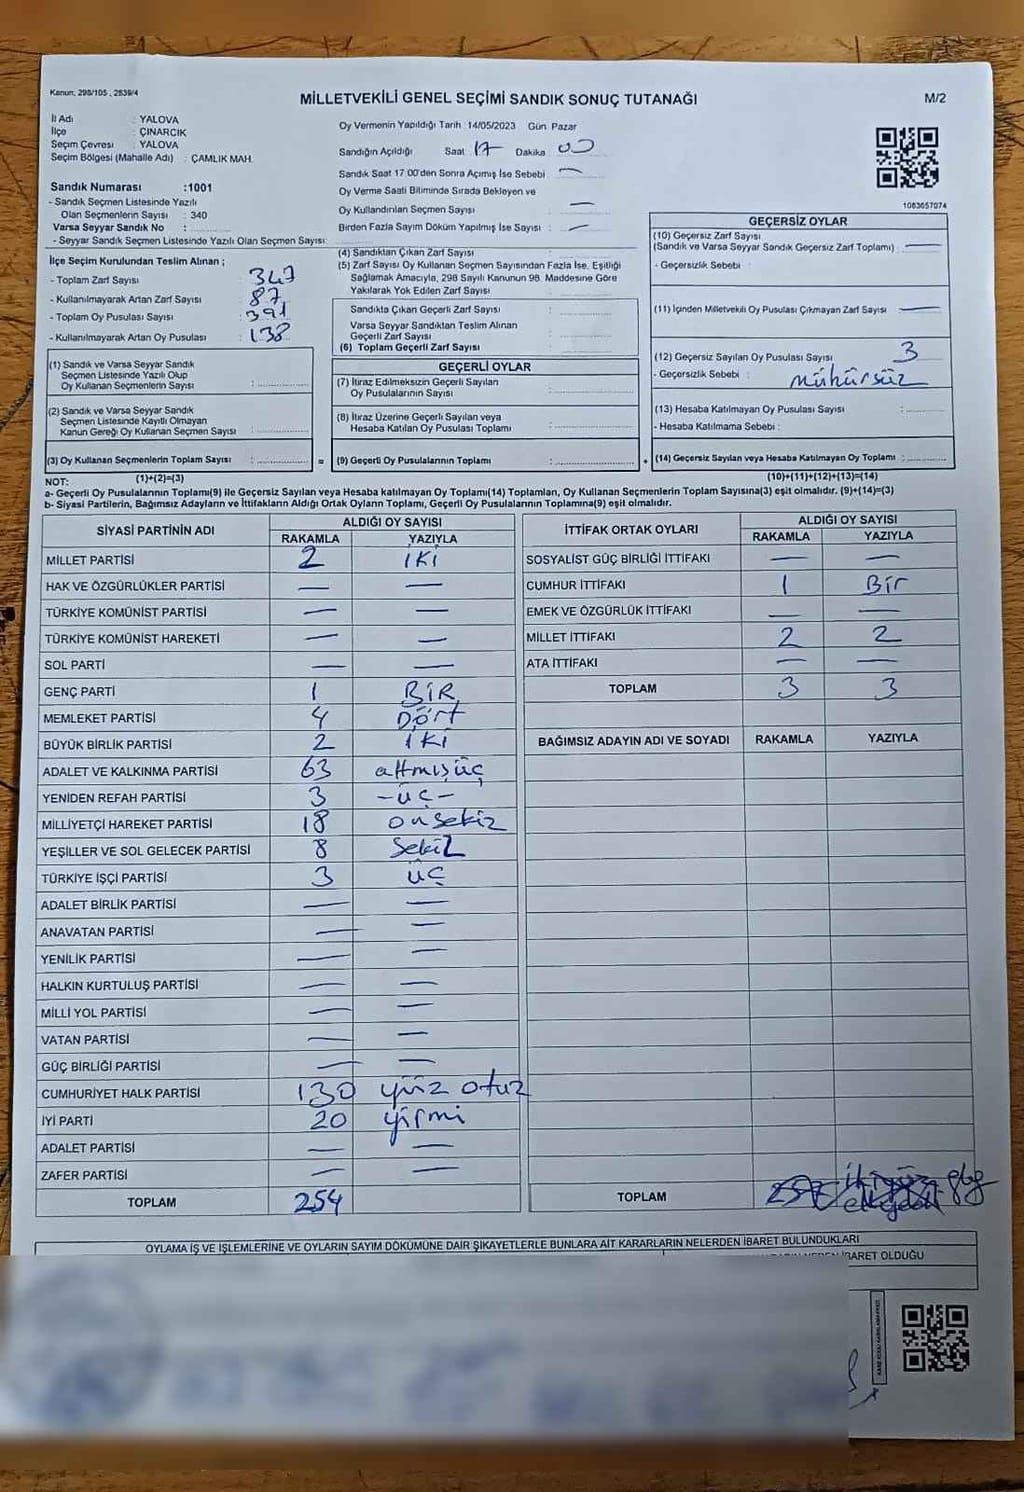 Kanun: 298/105 , 2839/4
MİLLETVEKİLİ GENEL SEÇİMİ SANDIK SONUÇ TUTANAĞI
M/2
İl Adı : YALOVA
İlçe : ÇINARCIK
Seçim Çevresi : YALOVA
Seçim Bölgesi (Mahalle Adı) : ÇAMLIK MAH.
Sandık Numarası :1001
- Sandık Seçmen Listesinde Yazılı
Olan Seçmenlerin Sayısı : 340
Varsa Seyyar Sandık No :
- Seyyar Sandık Seçmen Listesinde Yazılı Olan Seçmen Sayısı:
İlçe Seçim Kurulundan Teslim Alınan ;
- Toplam Zarf Sayısı : 347
- Kullanılmayarak Artan Zarf Sayısı : 87
- Toplam Oy Pusulası Sayısı : 391
- Kullanılmayarak Artan Oy Pusulası : 138
(1) Sandık ve Varsa Seyyar Sandık
Seçmen Listesinde Yazılı Olup
Oy Kullanan Seçmenlerin Sayısı :
(2) Sandık ve Varsa Seyyar Sandık
Seçmen Listesinde Kayıtlı Olmayan
Kanun Gereği Oy Kullanan Seçmen Sayısı :
(3) Oy Kullanan Seçmenlerin Toplam Sayısı : =
Oy Vermenin Yapıldığı Tarih :14/05/2023 Gün: Pazar
Sandığın Açıldığı Saat 17 Dakika : 00
Sandık Saat 17:00'den Sonra Açımış İse Sebebi : —
Oy Verme Saati Bitiminde Sırada Bekleyen ve
Oy Kullandırılan Seçmen Sayısı : —
Birden Fazla Sayım Döküm Yapılmış İse Sayısı : —
(4) Sandıktan Çıkan Zarf Sayısı :
(5) Zarf Sayısı Oy Kullanan Seçmen Sayısından Fazla İse, Eşitliği
Sağlamak Amacıyla, 298 Sayılı Kanunun 98. Maddesine Göre
Yakılarak Yok Edilen Zarf Sayısı :
Sandıkta Çıkan Geçerli Zarf Sayısı :
Varsa Seyyar Sandıktan Teslim Alınan
Geçerli Zarf Sayısı :
(6) Toplam Geçerli Zarf Sayısı :
GEÇERLİ OYLAR
(7) İtiraz Edilmeksizin Geçerli Sayılan
Oy Pusulalarının Sayısı :
(8) İtiraz Üzerine Geçerli Sayılan veya
Hesaba Katılan Oy Pusulası Toplamı :
(9) Geçerli Oy Pusulalarının Toplamı : +
1083657074
GEÇERSİZ OYLAR
(10) Geçersiz Zarf Sayısı
(Sandık ve Varsa Seyyar Sandık Geçersiz Zarf Toplamı) : —
- Geçersizlik Sebebi :
(11) İçinden Milletvekili Oy Pusulası Çıkmayan Zarf Sayısı : —
(12) Geçersiz Sayılan Oy Pusulası Sayısı : 3
- Geçersizlik Sebebi : mühürsüz
(13) Hesaba Katılmayan Oy Pusulası Sayısı :
- Hesaba Katılmama Sebebi :
(14) Geçersiz Sayılan veya Hesaba Katılmayan Oy Toplamı :
NOT: (1)+(2)=(3) (10)+(11)+(12)+(13)=(14)
a- Geçerli Oy Pusulalarının Toplamı(9) ile Geçersiz Sayılan veya Hesaba katılmayan Oy Toplamı(14) Toplamları, Oy Kullanan Seçmenlerin Toplam Sayısına(3) eşit olmalıdır. (9)+(14)=(3)
b- Siyasi Partilerin, Bağımsız Adayların ve İttifakların Aldığı Ortak Oyların Toplamı, Geçerli Oy Pusulalarının Toplamına(9) eşit olmalıdır.
SİYASİ PARTİNİN ADI ALDIĞI OY SAYISI
RAKAMLA YAZIYLA
MİLLET PARTİSİ 2 İKİ
HAK VE ÖZGÜRLÜKLER PARTİSİ — —
TÜRKİYE KOMÜNİST PARTİSİ — —
TÜRKİYE KOMÜNİST HAREKETİ — —
SOL PARTİ — —
GENÇ PARTİ 1 BİR
MEMLEKET PARTİSİ 4 Dört
BÜYÜK BİRLİK PARTİSİ 2 İKİ
ADALET VE KALKINMA PARTİSİ 63 altmışüç
YENİDEN REFAH PARTİSİ 3 -üç-
MİLLİYETÇİ HAREKET PARTİSİ 18 onsekiz
YEŞİLLER VE SOL GELECEK PARTİSİ 8 Sekiz
TÜRKİYE İŞÇİ PARTİSİ 3 üç
ADALET BİRLİK PARTİSİ — —
ANAVATAN PARTİSİ — —
YENİLİK PARTİSİ — —
HALKIN KURTULUŞ PARTİSİ — —
MİLLİ YOL PARTİSİ — —
VATAN PARTİSİ — —
GÜÇ BİRLİĞİ PARTİSİ — —
CUMHURİYET HALK PARTİSİ 130 yüz otuz
İYİ PARTİ 20 yirmi
ADALET PARTİSİ — —
ZAFER PARTİSİ — —
TOPLAM 254
İTTİFAK ORTAK OYLARI ALDIĞI OY SAYISI
RAKAMLA YAZIYLA
SOSYALİST GÜÇ BİRLİĞİ İTTİFAKI — —
CUMHUR İTTİFAKI 1 Bir
EMEK VE ÖZGÜRLÜK İTTİFAKI — —
MİLLET İTTİFAKI 2 2
ATA İTTİFAKI — —
TOPLAM 3 3
BAĞIMSIZ ADAYIN ADI VE SOYADI RAKAMLA YAZIYLA
TOPLAM
OYLAMA İŞ VE İŞLEMLERİNE VE OYLARIN SAYIM DÖKÜMÜNE DAİR ŞİKAYETLERLE BUNLARA AİT KARARLARIN NELERDEN İBARET BULUNDUKLARI
İBARET OLDUĞU